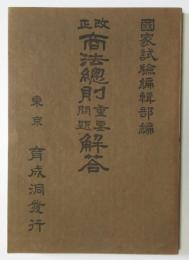 國家試驗編輯部編
改正
商法總則重要問題解答
東京 育成洞發行